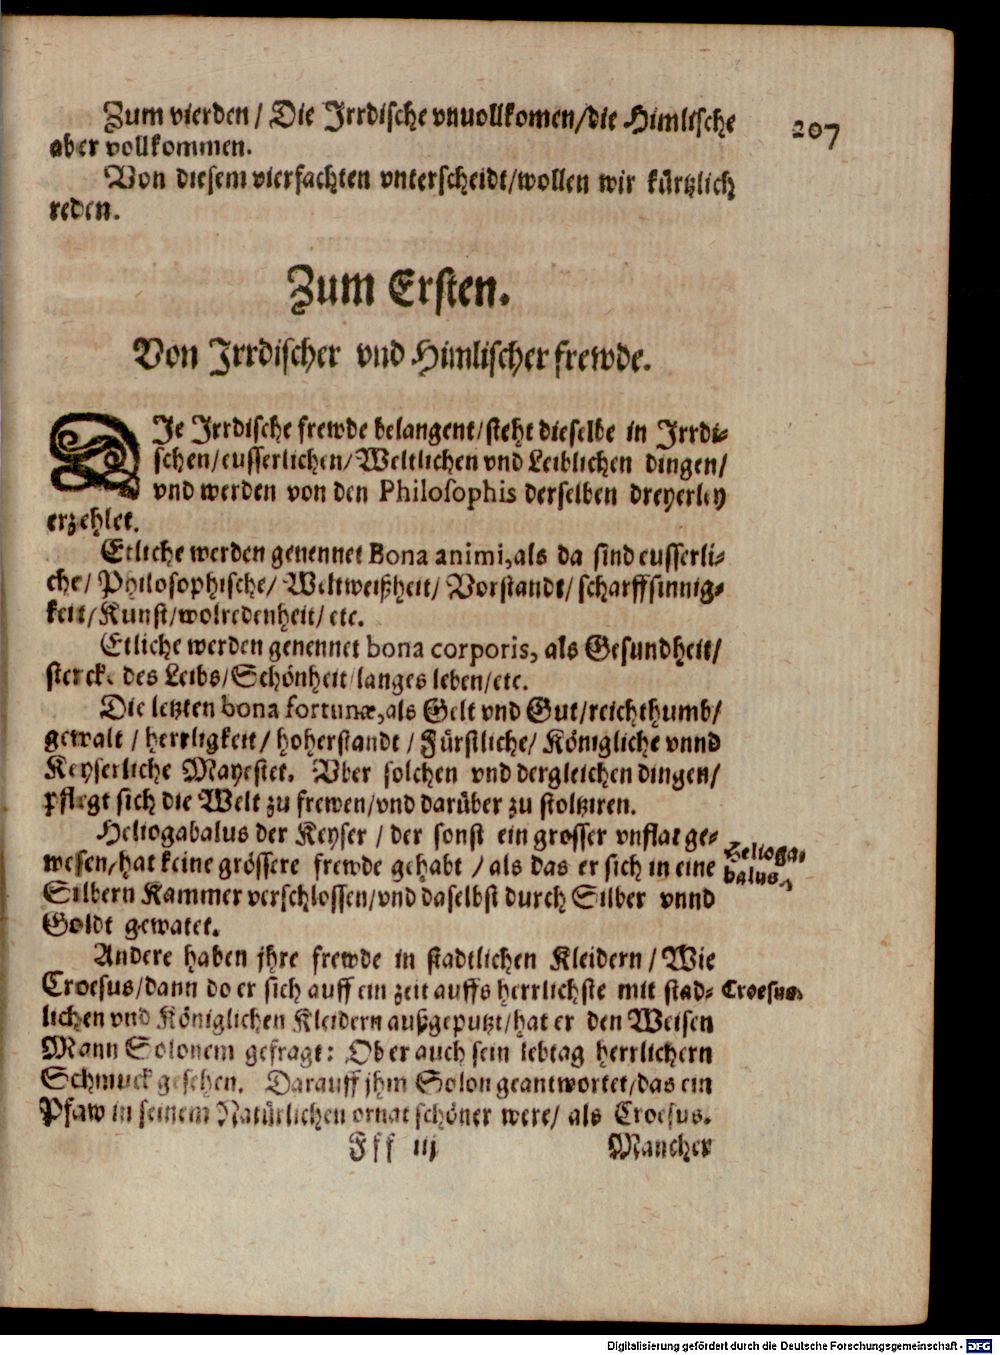 Zum vierden / Die Jrrdische vnuollkomen/die Himlische
207
aber vollkommen.
Von diesem vierfachten vnterscheidt/wollen wir kürtzlich
reden.
Zum Ersten.
Von Jrrdischer vnd Himlischer frewde.
DJe Jrrdische frewde belangent/steht dieselbe in Jrrdi-
schen/eusserlichen/Weltlichen vnd Leiblichen dingen/
vnd werden von den Philosophis derselben dreyerley
erzehlet.
Etliche werden genennet Bona animi,als da sind eusserli-
che/ Philosophische/ Weltweißheit/ Vorstandt/ scharffsinnig-
keit/Kunst/wolredenheit/ etc.
Etliche werden genennet bona corporis, als Gesundheit/
stercke des Leibs/Schönheit/langes leben/etc.
Die letzten bona fortunæ,als Gelt vnd Gut/reichthumb/
gewalt / herrligkeit/ hoherstandt / Fürstliche/ Königliche vnnd
Keyserliche Mayestet. Vber solchen vnd dergleichen dingen/
pflegt sich die Welt zu frewen/vnd darüber zu stoltziren.
Heliogabalus der Keyser / der sonst ein grosser vnflat ge-
Helioga-
wesen/hat keine grössere frewde gehabt / als das er sich in eine
balus.
Silbern Kammer verschlossen/vnd daselbst durch Silber vnnd
Goldt gewatet.
Andere haben jhre frewde in stadtlichen Kleidern / Wie
Croesus/dann do er sich auff ein zeit auffs herrlichste mit stad-
Croesus.
lichen vnd Königlichen Kleidern außgeputzt/hat er den Weisen
Mann Solonem gefragt: Ob er auch sein lebtag herrlichern
Schmuck gesehen. Darauff jhm Solon geantwortet/das ein
Pfaw in seinem Natürlichen ornat schöner were/ als Croesus.
Fff iij
Mancher
Digitalisierung gefördert durch die Deutsche Forschungsgemeinschaft - DFG